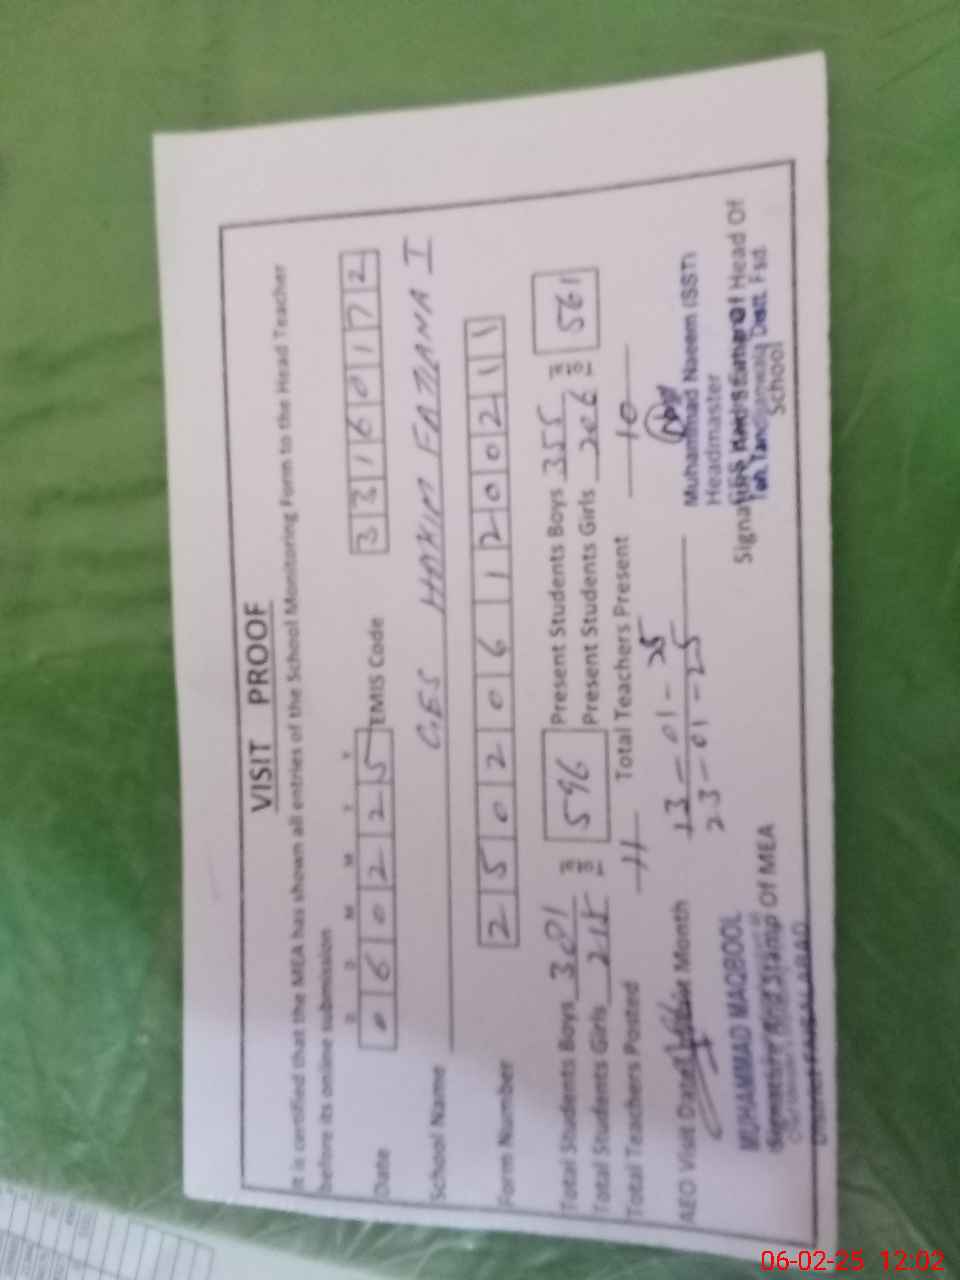 VISIT PROOF
It is certified that the MEA has shown all entries of the School Monitoring Form to the Head Teacher
before its online submission
D D M M Y Y
Date 0 6 0 2 2 5 EMIS Code 3 3 1 6 0 1 7 2
School Name GES HAKIM FATIANA I
Form Number 2 5 0 2 0 6 1 2 0 0 2 1 1
Total Students Boys 381 = 596 Present Students Boys 355 = 561
Total Students Girls 215 Present Students Girls 206
Total Teachers Posted 11 Total Teachers Present 10
AEO Visit Date Within Month 13-01-25
23-01-25
MUHAMMAD MAQBOOL
Signature And Stamp Of MEA
Muhammad Naeem (SST)
Headmaster
Signature And Stamp Of Head Of
School
06-02-25 12:02